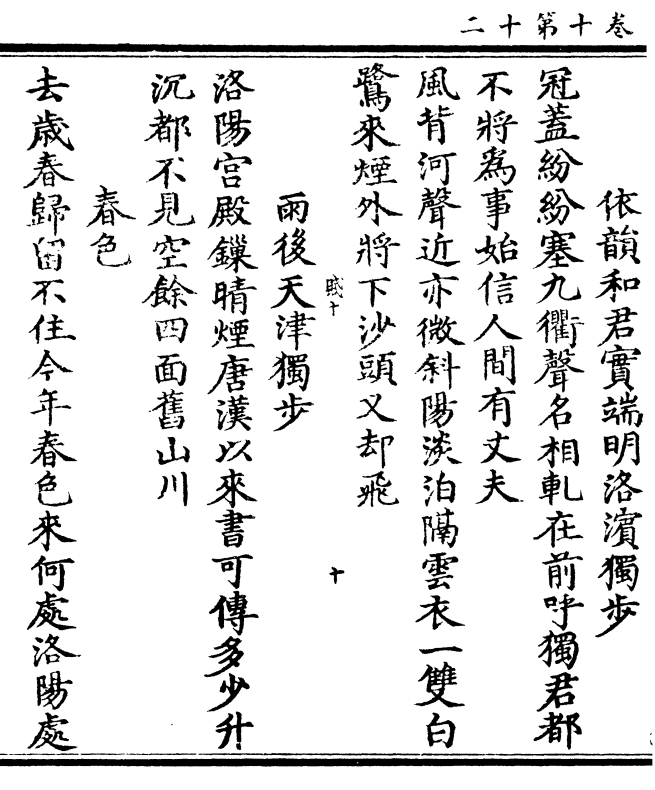 卷十第十二
依韻和君實端明洛濱獨步
冠蓋紛紛塞九衢聲名相軋在前呼獨君都
不將為事始信人間有丈夫
風背河聲近亦微斜陽淡泊隔雲衣一雙白
鷺來煙外將下沙頭又却飛
十
雨後天津獨步
洛陽宮殿鏁晴煙唐漢以來書可傳多少升
沉都不見空餘四面舊山川
春色
去歲春歸留不住今年春色來何處洛陽處